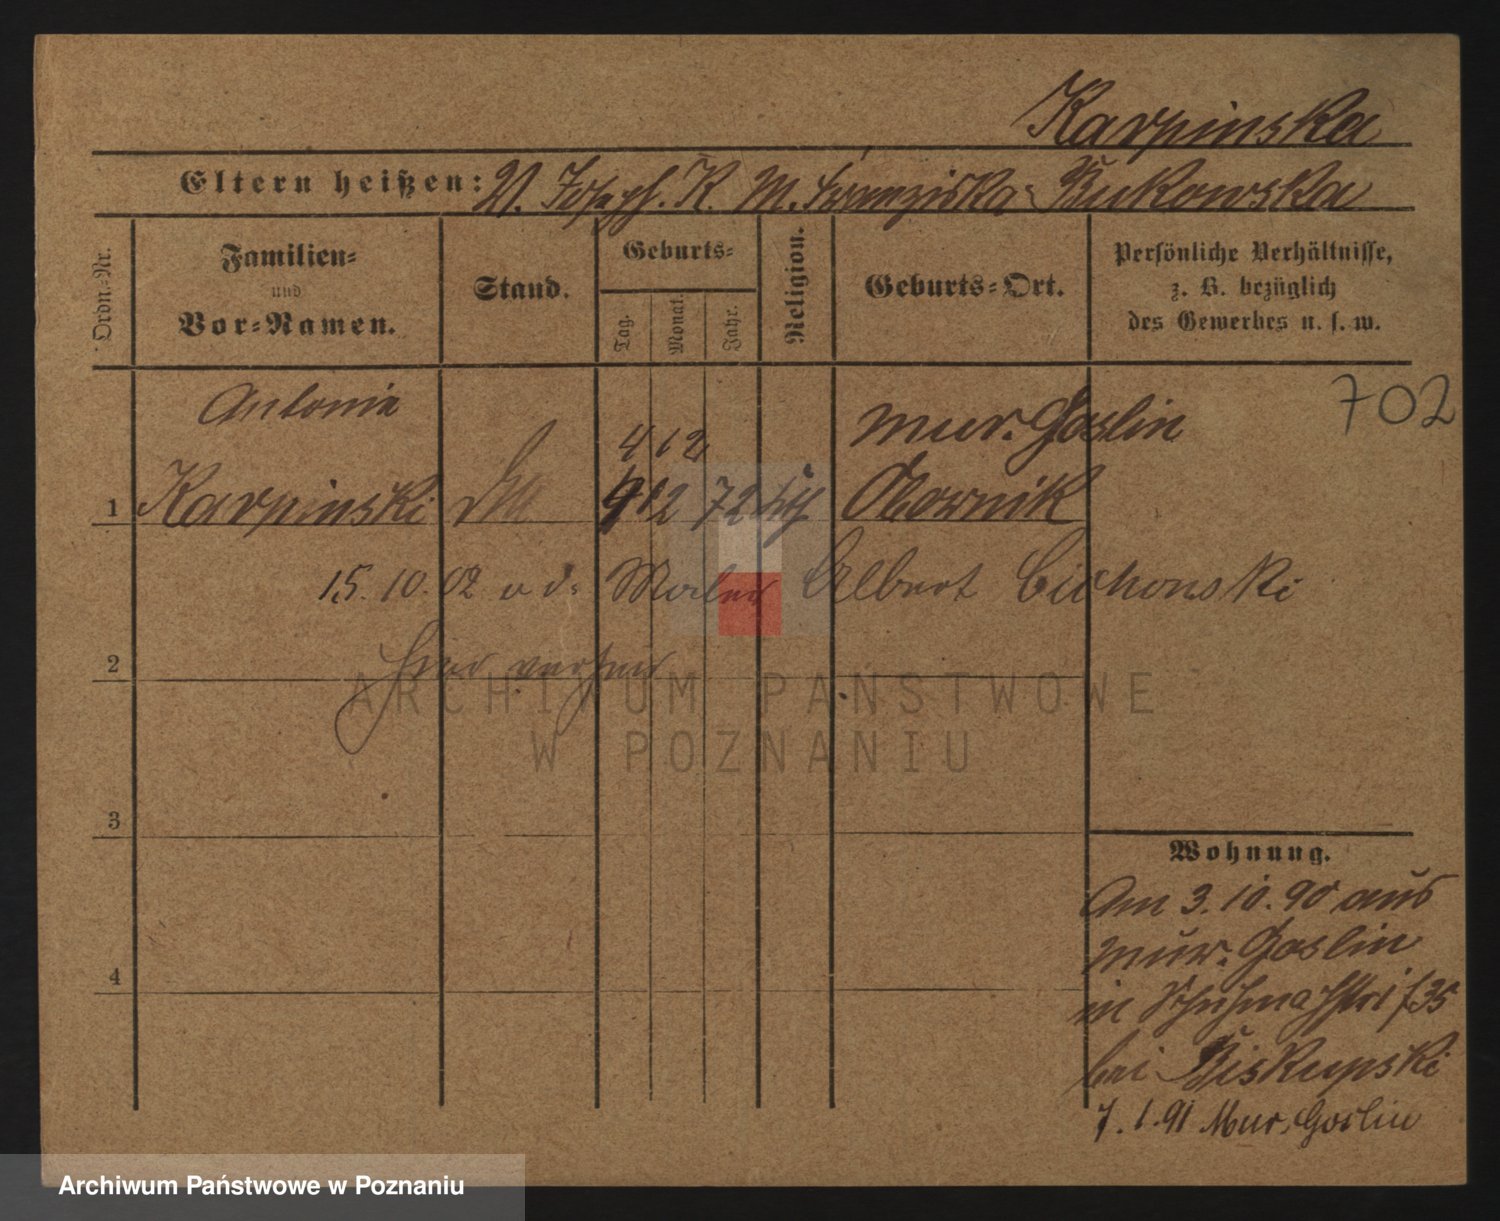 Karpinska
Eltern heißen: V. Joseph. K. M. Franziska Bukowska
Ordn.-Nr.
Familien-
und
Vor-Namen.
Stand.
Geburts-
Tag.
Monat.
Jahr.
Religion.
Geburts-Ort.
Persönliche Verhältnisse,
z. B. bezüglich
des Gewerbes u. s. w.
702
Antonie
4 12
Mur. Goslin
1 Karpinski 4 12 72 Obornik
15. 10. 02 Maler Albert Cichonski
hier
2
ARCHIWUM PAŃSTWOWE
W POZNANIU
3
4
Wohnung.
Am 3. 10. 90 aus
Mur. Goslin
in 35
bei Biskupski
7. 1. 91 Mur. Goslin
Archiwum Państwowe w Poznaniu